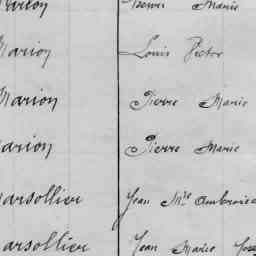 Marion Louis Victor
Marion Pierre Marie
Marion Pierre Marie
Marsollier Jean Mie Ambroise
Marsollier Jean Marie